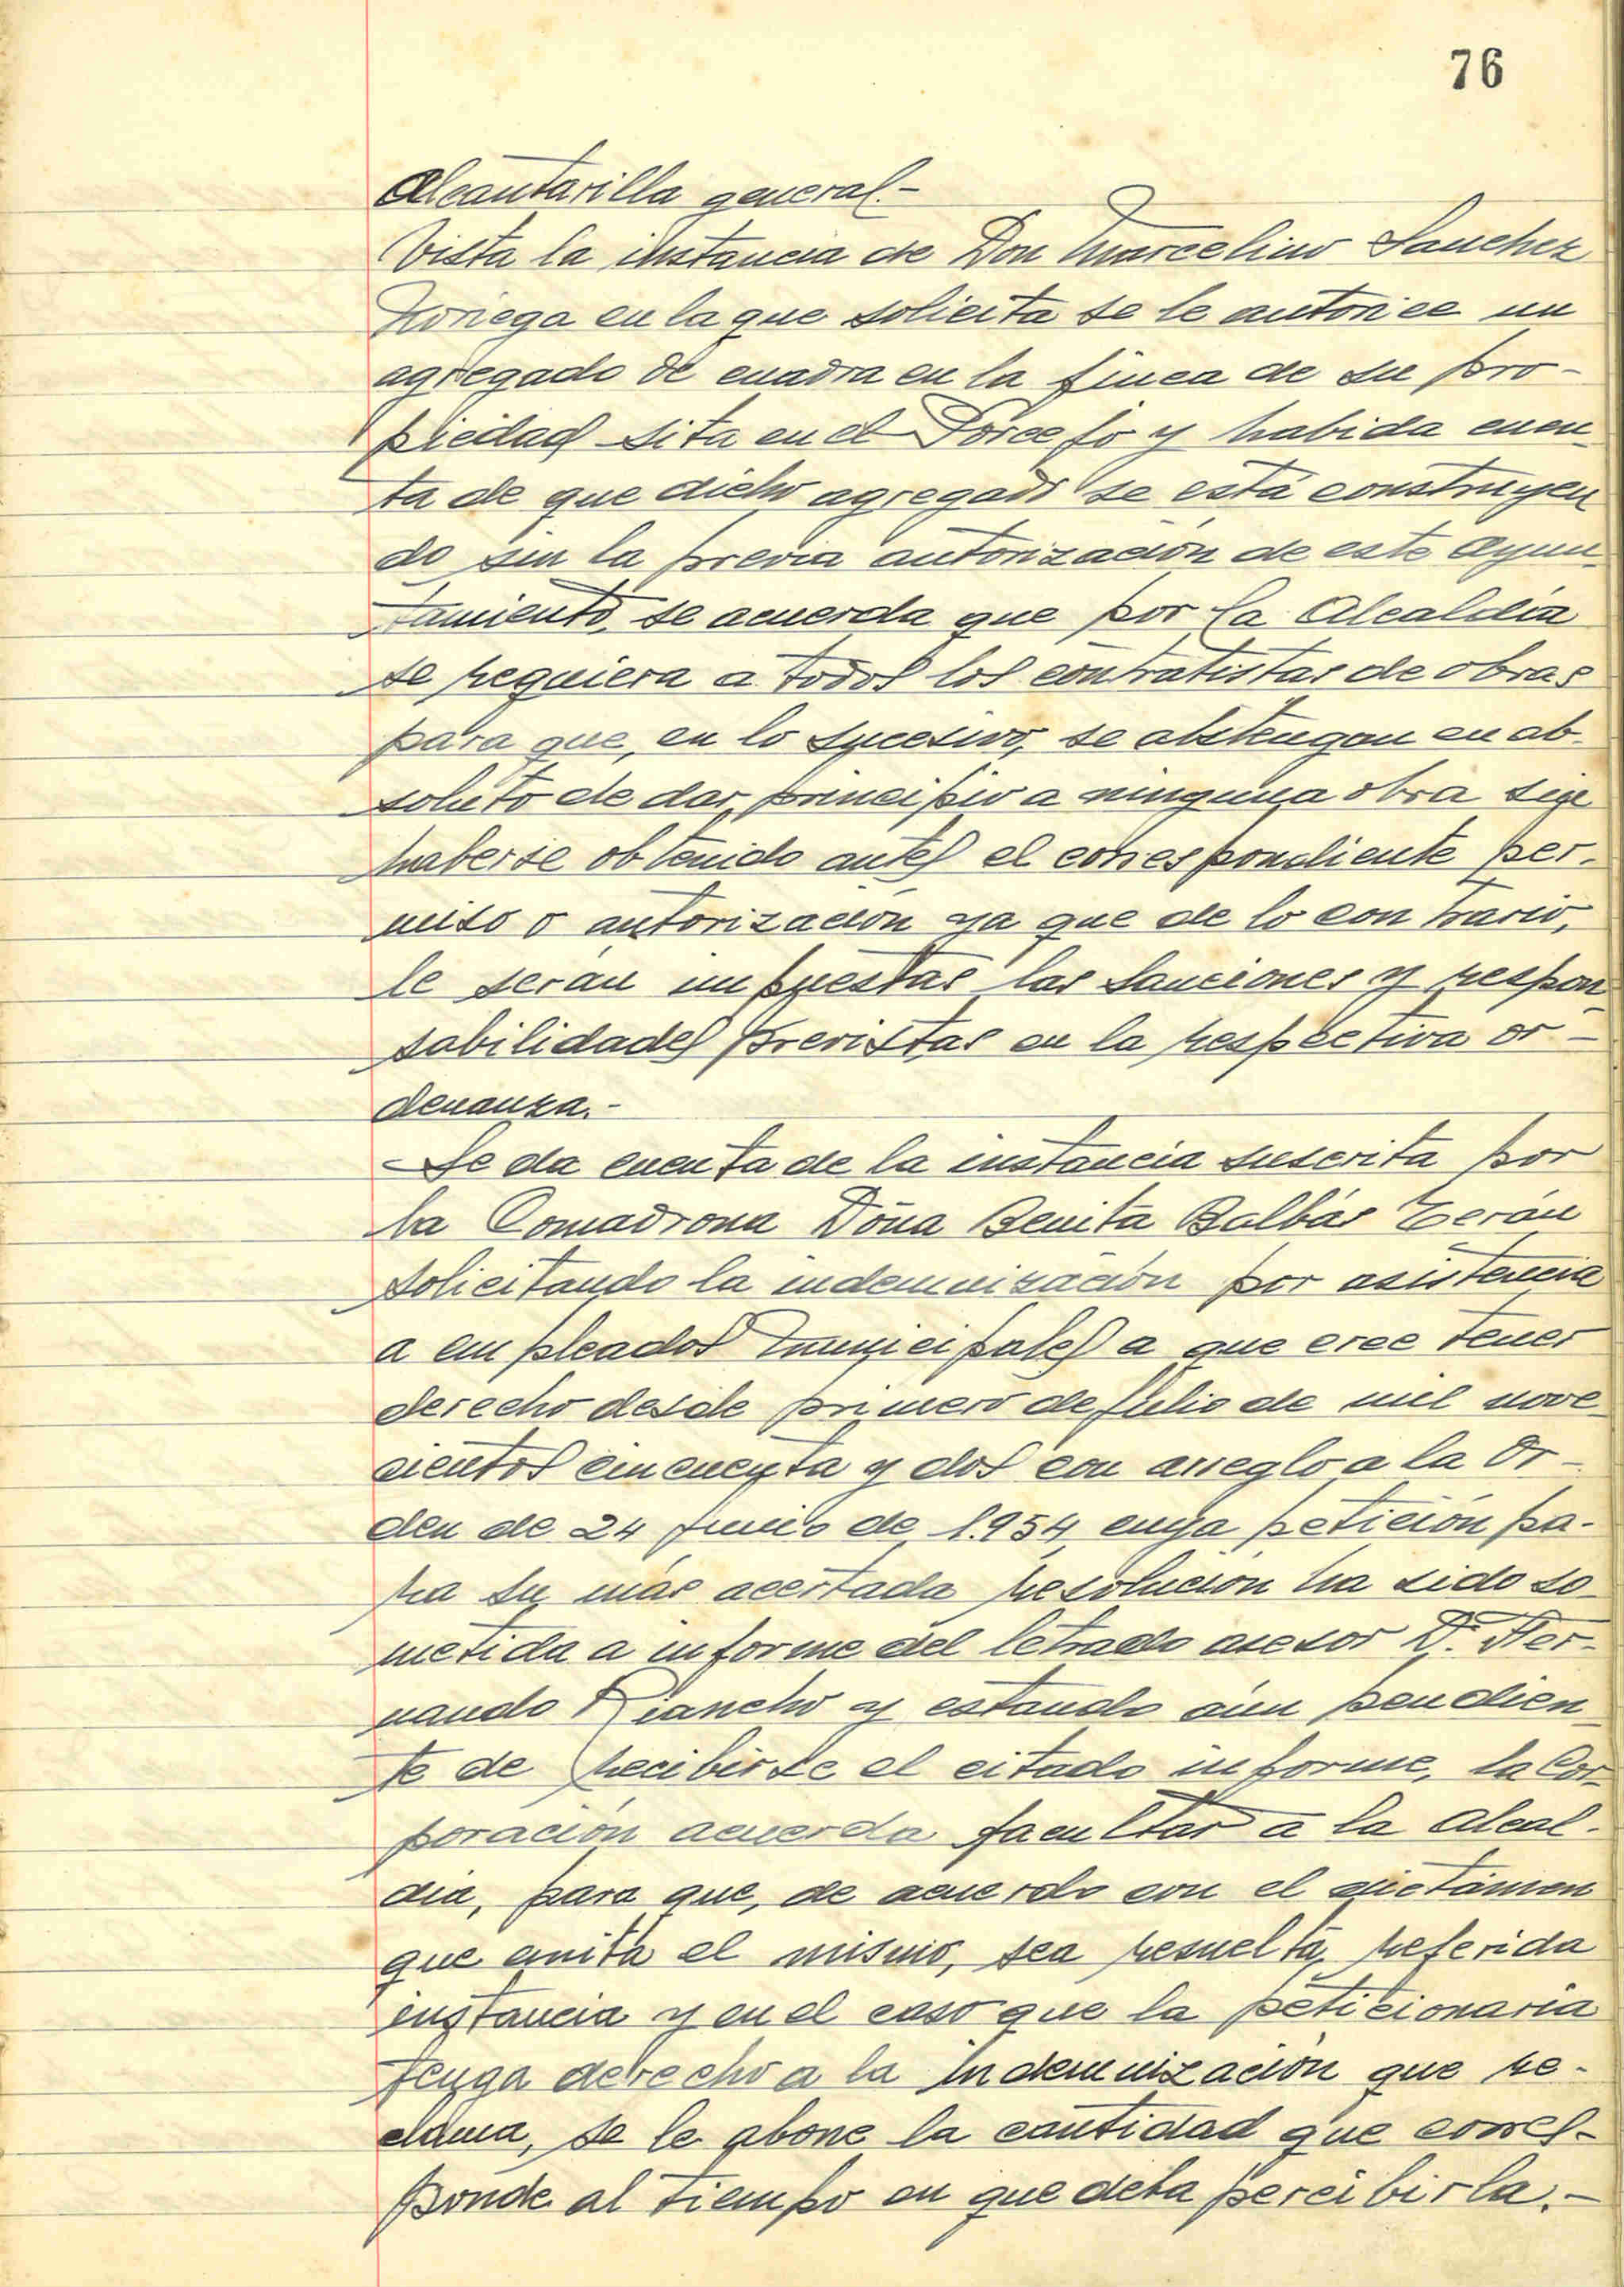 76
Alcantarilla general.-
Vista la instancia de Don Marcelino Sanchez
Noriega en la que solicita se le autorice un
agregado de cuadra en la finca de su pro-
piedad sita en el Porcejo y habida cuen-
ta de que dicho agregado se está construyen
do sin la previa autorización de este Ayun-
tamiento, se acuerda que por la Alcaldía
se requiera a todos los contratistas de obras
para que, en lo sucesivo, se abstengan en ab-
soluto de dar principio a ninguna obra sin
haberse obtenido antes el correspondiente per-
miso o autorización ya que de lo contrario,
le serán impuestas las sanciones y respon-
sabilidades previstas en la respectiva or-
denanza.-
Se da cuenta de la instancia suscrita por
la Comadrona Doña Benita Balbás Terán
solicitando la indemnización por asistencia
a empleados municipales a que cree tener
derecho desde primero de Julio de mil nove-
cientos cincuenta y dos con arreglo a la Or-
den de 24 Junio de 1.954, cuya petición pa-
ra su más acertada resolución ha sido so-
metida a informe del letrado asesor D. Fer-
nando Riancho y estando aún pendien-
te de recibirse el citado informe, la Cor-
poración acuerda facultar a la Alcal-
día, para que, de acuerdo con el dictámen
que emita el mismo, sea resuelta referida
instancia y en el caso que la peticionaria
tenga derecho a la indemnización que re-
clama, se le abone la cantidad que corres-
ponde al tiempo en que deba percibirla.-